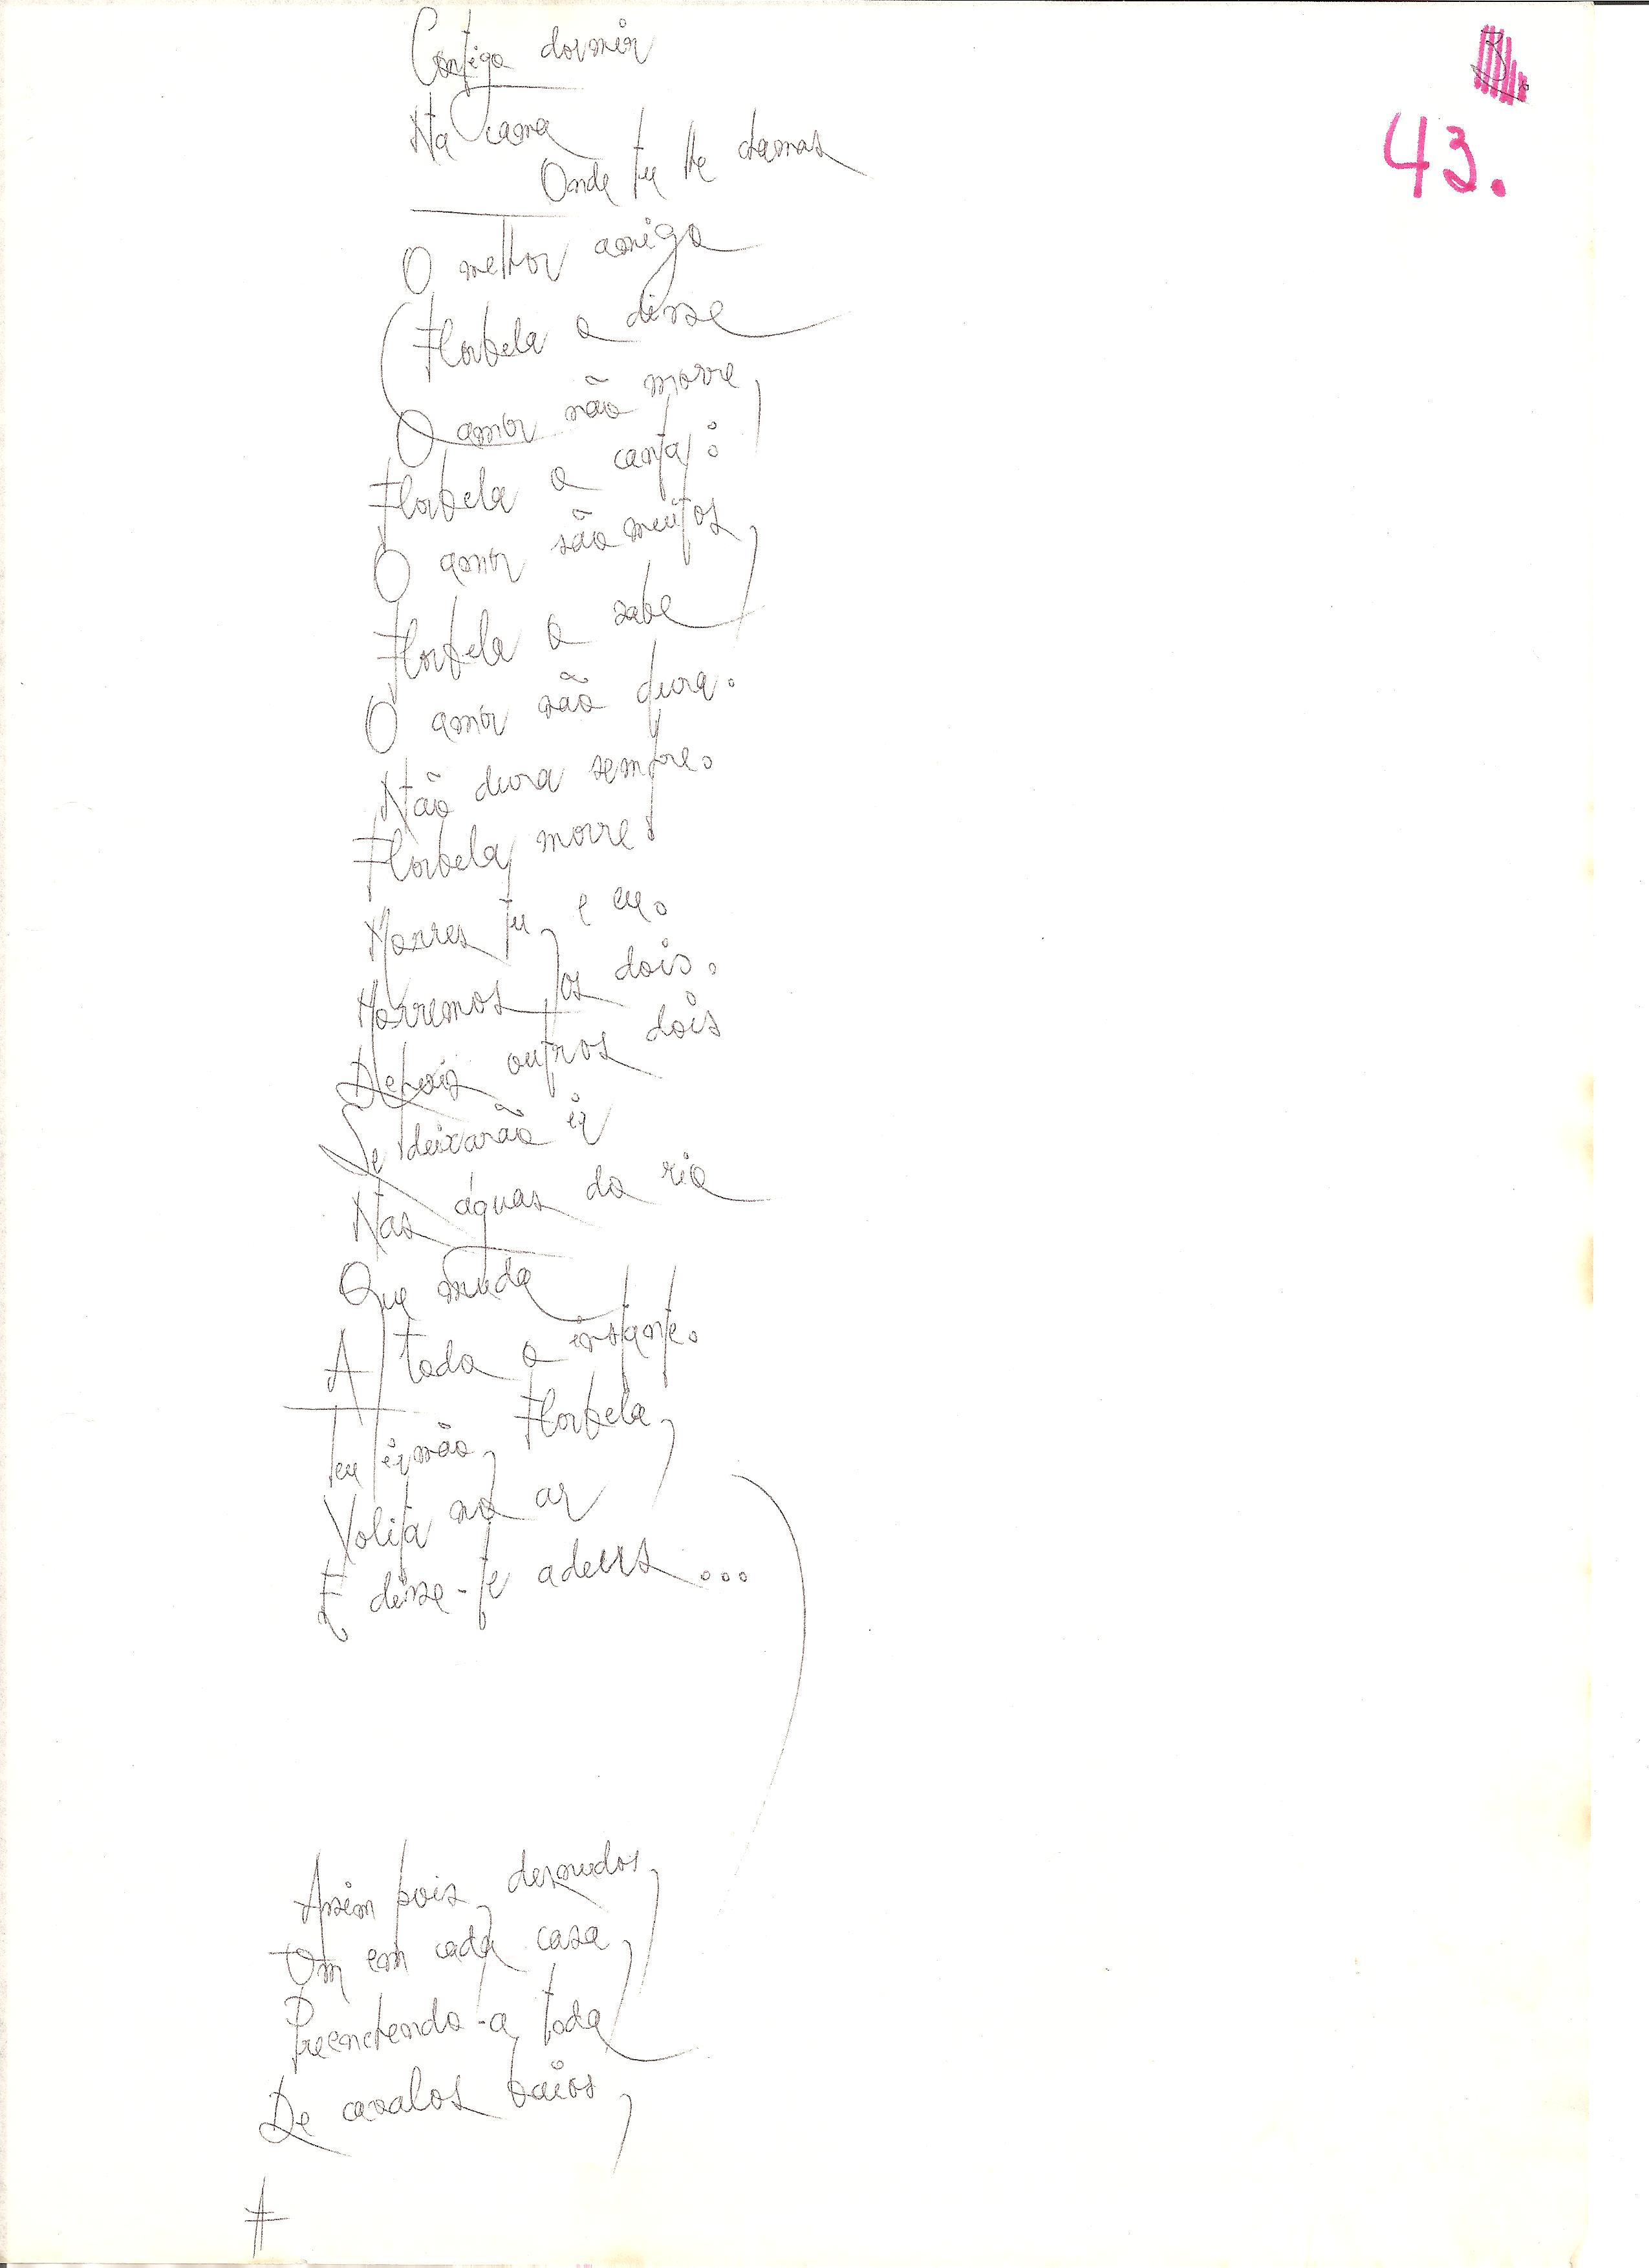 3.
43.
Contigo dormir
Na cama
Onde tu lhe chamas
O melhor amigo
Florbela o disse
O amor não morre,
Florbela o canta:
O amor são muitos,
Florbela o sabe
O amor não dura.
Não dura sempre.
Florbela, morre!
Morres tu, e eu.
Morremos os dois.
Depois outros dois
Se deixarão ir
Nas águas do rio
Que muda
A todo o instante.
Teu irmão, Florbela,
Volita no ar
E disse-te adeus...
Assim pois, desnudos,
Um em cada casa,
Preenchendo-a toda
De cavalos baios,